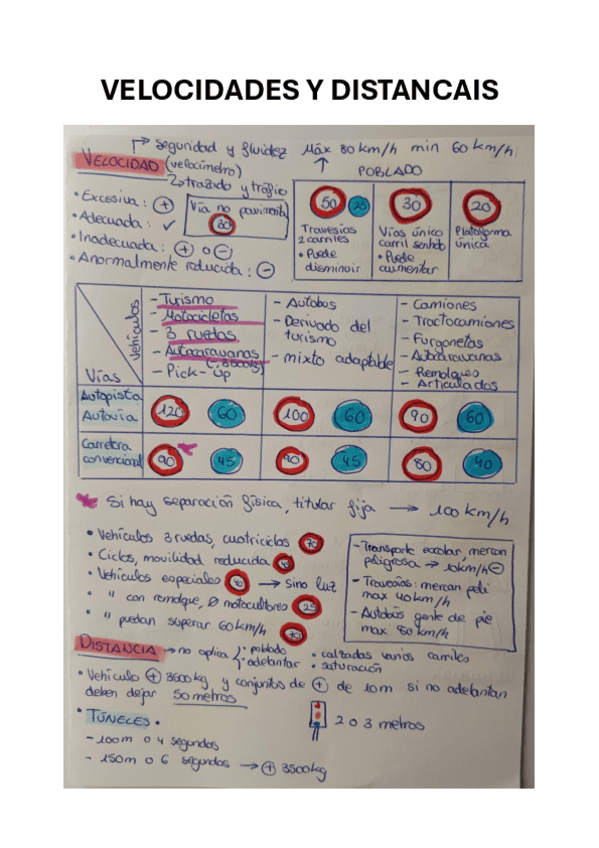 VELOCIDADES Y DISTANCAIS
↱ seguridad y fluidez Máx 80 km/h min 60 km/h
VELOCIDAD (velocímetro) ↑ POBLADO
↳ trazado y tráfico
• Excesiva: +
• Adecuada: ✓
• Inadecuada: + o -
• Anormalmente reducida: -
Vía no paviment
30
50 25
Travesías
2 carriles
• Puede
disminuir
30
Vías único
carril sentido
• Puede
aumentar
20
Plataforma
única
Vehículos
Vías
- Turismo
- Motocicletas
- 3 ruedas
- Autocaravanas
(-3500kg)
- Pick-Up
- Autobus
- Derivado del
turismo
- mixto adaptable
- Camiones
- Tractocamiones
- Furgonetas
- Autocaravanas
- Remolques
- Articulados
Autopista
Autovía
120 60 100 60 90 60
Carretera
convencional
90 45 90 45 80 40
Si hay separación física, titular fija → 100 km/h
• Vehículos 3 ruedas, cuatriciclos 70
• Ciclos, movilidad reducida 45
• Vehículos especiales 40 → sino luz
• " con remolque, Ø motocultores 25
• " puedan superar 60 km/h 70
- Transporte escolar, mercan
peligrosa → 10km/h -
- Travesías: mercan peli
max 40 km/h
- Autobús gente de pie
max 80 km/h
DISTANCIA → no aplica • poblado • calzadas varios carriles
• adelantar • saturación
• Vehículo + 3500kg y conjuntos de + de 10m si no adelantan
deben dejar 50 metros
• TÚNELES • 2 o 3 metros
- 100m o 4 segundos
- 150m o 6 segundos → + 3500kg